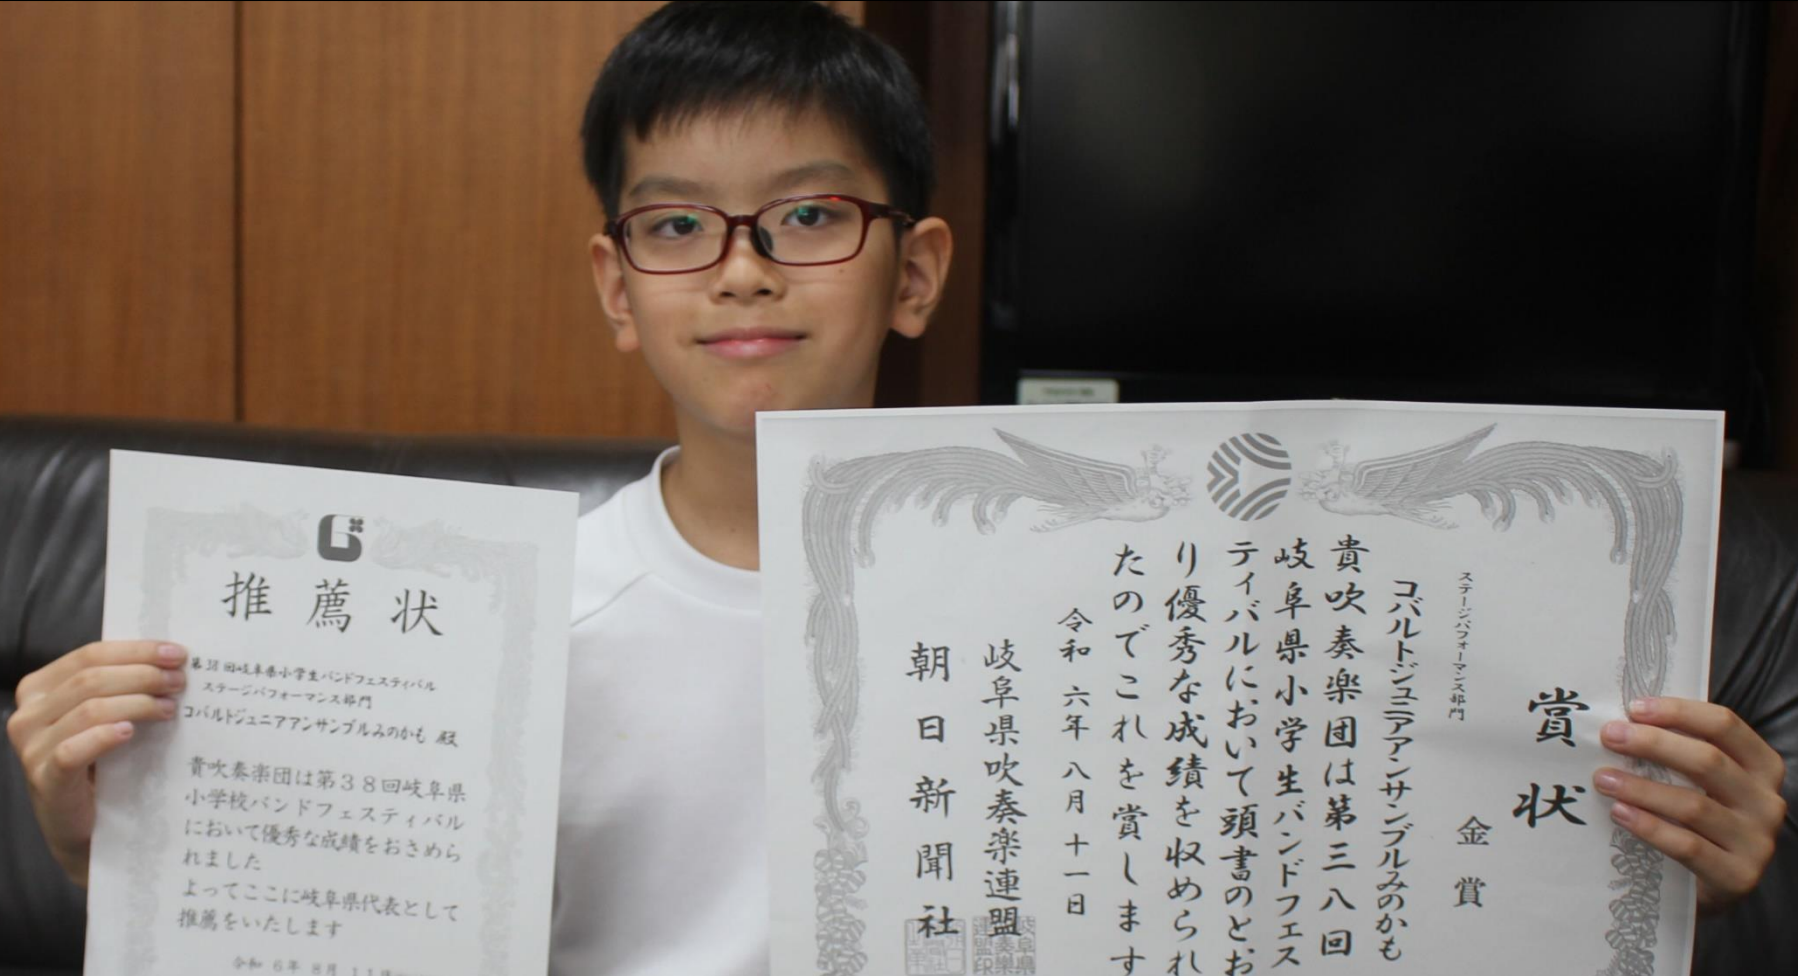 推薦状
第38回岐阜県小学生バンドフェスティバル
ステージパフォーマンス部門
コバルトジュニアアンサンブルみのかも 殿
貴吹奏楽団は第38回岐阜県
小学校バンドフェスティバル
において優秀な成績をおさめら
れました
よってここに岐阜県代表として
推薦をいたします
令和 6年 8月 11日
賞状
金賞
ステージパフォーマンス部門
コバルトジュニアアンサンブルみのかも
貴吹奏楽団は第三八回
岐阜県小学生バンドフェス
ティバルにおいて頭書のとお
り優秀な成績を収められ
たのでこれを賞します
令和六年八月十一日
岐阜県吹奏楽連盟
朝日新聞社